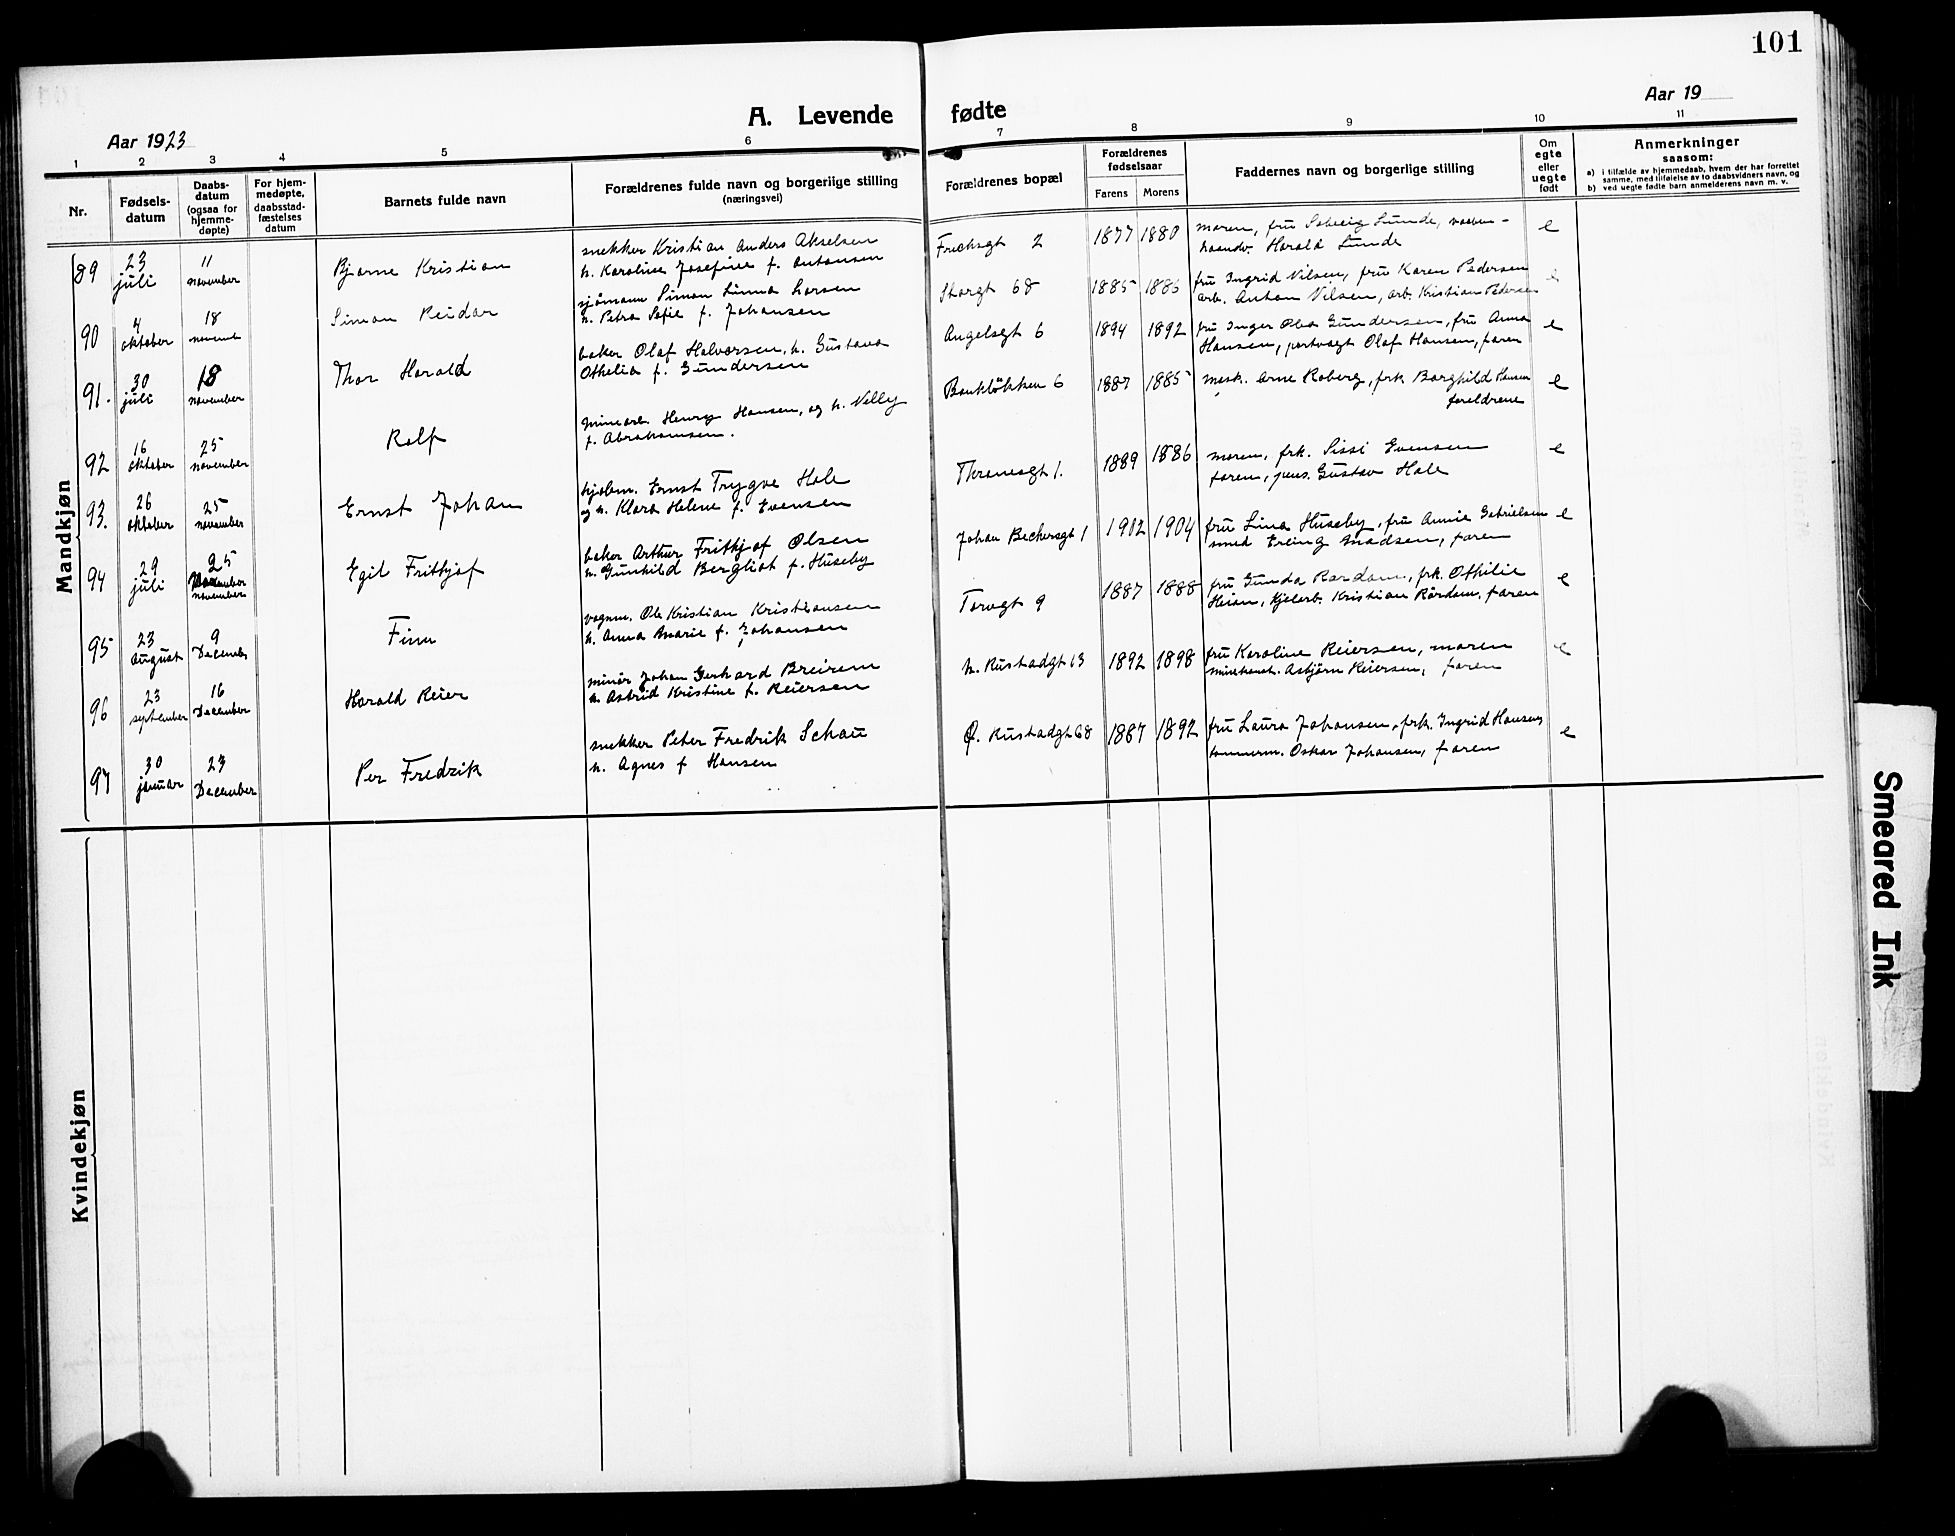 101
A. Levende fødte
Aar 1923
Aar 19
1 2 3 4 5 6 7 8 9 10 11
Nr.
Fødsels-
datum
Daabs-
datum
(ogsaa for
hjemme-
døpte)
For hjem-
medøpte,
daabsstad-
fæstelses
datum
Barnets fulde navn
Forældrenes fulde navn og borgerlige stilling
(næringsvei)
Forældrenes bopæl
Forældrenes
fødselsaar
Farens Morens
Faddernes navn og borgerlige stilling
Om
egte
eller
uegte
født
Anmerkninger
saasom:
a) i tilfælde av hjemmedaab, hvem der har forrettet
samme, med tilføielse av to daabsvidners navn, og
b) ved uegte fødte barn anmelderens navn m. v.
Mandkjøn
89
23
juli
11
november
Bjarne Kristian
snekker Kristian Anders Akselsen
h. Karoline Josefine f. Antonsen
2
1877 1880
moren, fru Solveig Lunde,
Harald Lunde
e
90
4
oktober
18
Simon Reidar
sjømann Simon Larsen
h. Petra Sofie f. Johansen
Storgt 68
1885 1886
fru Ingrid Nilsen, fru Karen Pedersen
arb. Anton Nilsen, arb. Kristian Pedersen
e
91.
30
juli
18
november
Thor Harald
baker Olaf Halvorsen, h. Gustava
Othelia f. Gundersen
Angelsgt 6
1894 1892
fru Inger Gundersen, fru Anna
Hansen, portvagt Olaf Hansen, faren
e
92
16
oktober
25
november
Rolf
Minearb. Henry Hansen, og h. Nelly
f. Abrahamsen.
Bankløkken 6
1887 1885
mask. Arne Roberg, frk Borghild Hansen
foreldrene
e
93.
26
oktober
25
november
Ernst Johan
Ernst Trygve Hole
og h. Klara Helene f. Evensen
Thranesgt 1.
1889 1886
moren, frk. Sissi Evensen
faren, pens. Gustav Hole
e
94
29
juli
25
november
Egil Fritjof
baker Arthur Fritjof Olsen
h. Gunhild Bergliot f. Huseby
Johan Beckersgt 1
1902 1904
fru Lina Huseby, fru Annie Gabrielsen
smed Erling Madsen, faren
e
95
23
august
9
Decemb.
Finn
vognm. Ole Kristian Kristiansen
h. Anna Marie f. Johansen
Torvgt 9
1887 1888
fru Gunda Rørdam, frk. Othilie
Heian, Kristian Rørdam, faren
e
96
23
september
16
December
Harald Reier
minør Johan Gerhard Breirem
h. Astrid Kristine f. Reiersen
N. Kustadgt 13
1892 1898
fru Karoline Reiersen, moren
Asbjørn Reiersen, faren
e
97
30
januar
23
December
Per Fredrik
snekker Peter Fredrik Schau
h. Agnes f Hansen
Ø. Kustadgt 68
1887 1892
fru Laura Johansen, frk. Ingrid Hansen
tømmerm. Oskar Johansen, faren
e
Kvindekjøn
Smeared Ink